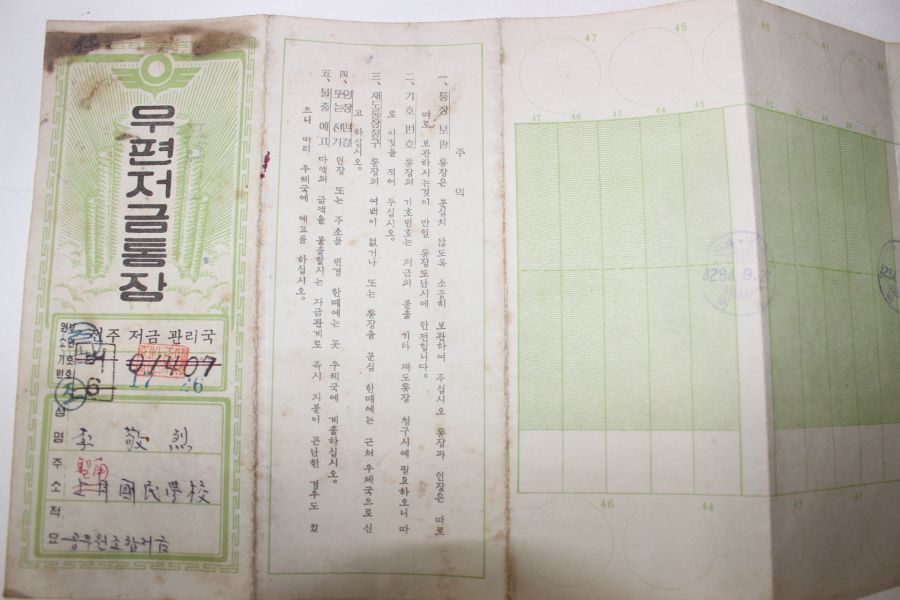 우편저금통장
원부
소관
전주 저금 관리국
기호
번호
01407
6
17
26
성명
李敬烈
주소
國民學校
적요
공무원조합저금
주의
一、통장보관 통장은 분실치 않도록 소중히 보관하여 주십시오 통장과 인장은 따로
따로 보관하시는것이 만일 통장도난시에 안전합니다。
二、기호번호 통장의 기호번호는 저금의 불출 기타 재도통장 청구시에 필요하오니 따
로 이것을 적어 두십시오。
三、재도통장청구 통장의 여백이 없거나 또는 통장을 분실 한때에는 근처 우체국으로 신
고 하십시오。
四、인장 변경 또는 전거 인장 또는 주소를 변경 한때에는 곳 우체국에 계출하십시오。
五、불출 예고 다액의 금액을 불출할시는 자금관계로 즉시 지불이 곤난한 경우도 있
으니 미리 우체국에 예고를 하십시오。
47
46
45
47
46
45
44
43
4294.9.2
46
44
42
41